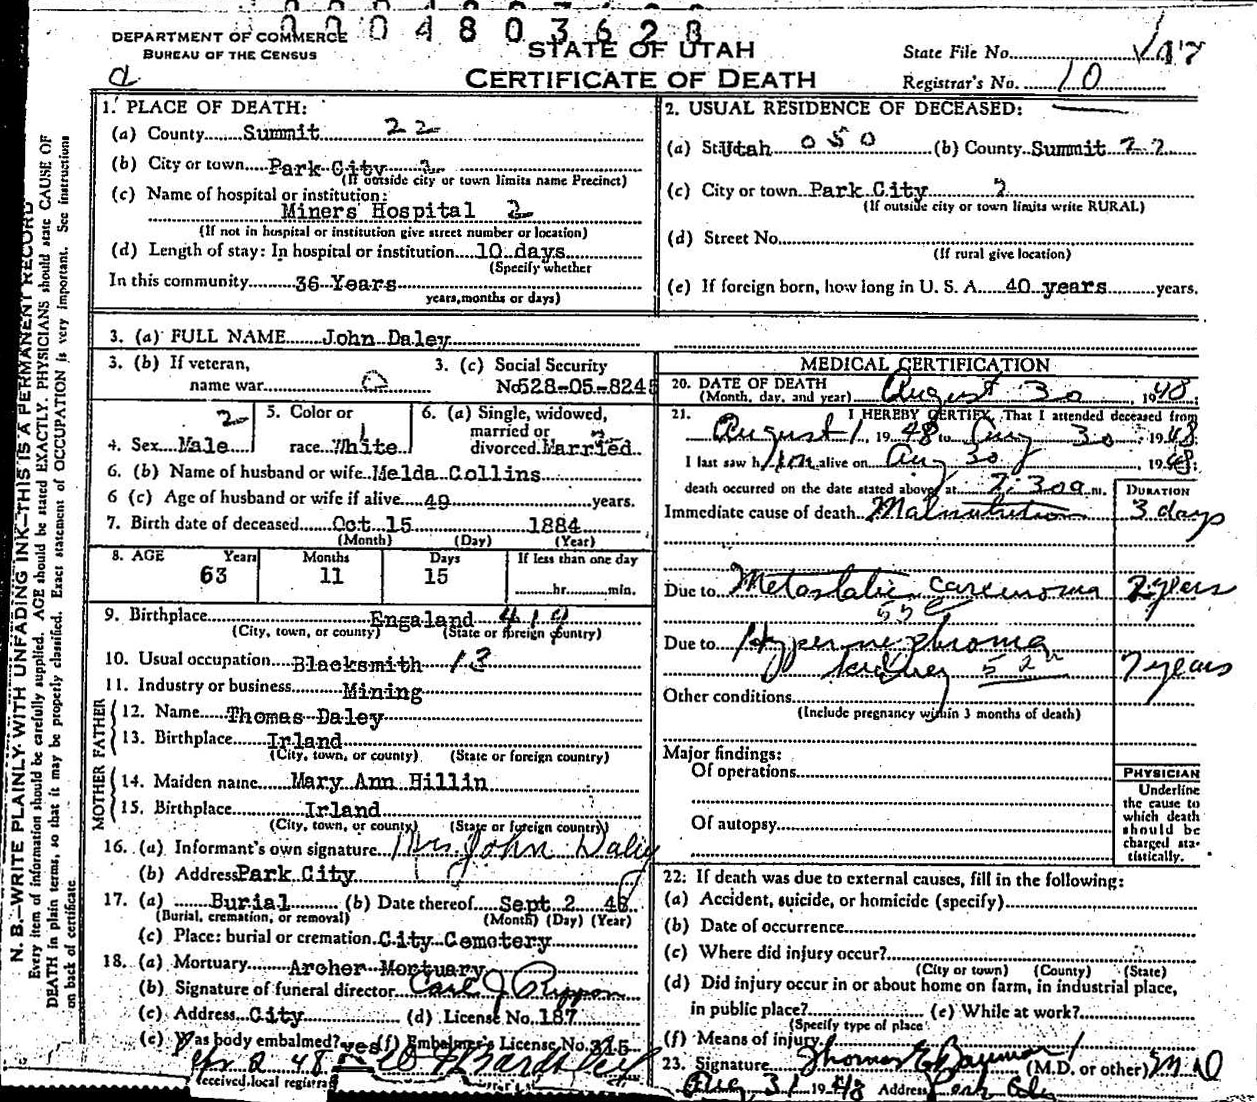 0004803628
DEPARTMENT OF COMMERCE
BUREAU OF THE CENSUS
STATE OF UTAH
CERTIFICATE OF DEATH
State File No.
Registrar's No. 10
1. PLACE OF DEATH:
(a) County Summit 22
(b) City or town Park City 2
(If outside city or town limits name Precinct)
(c) Name of hospital or institution:
Miners Hospital 2
(If not in hospital or institution give street number or location)
(d) Length of stay: In hospital or institution 10 days
(Specify whether
In this community 36 Years
years, months or days)
2. USUAL RESIDENCE OF DECEASED:
(a) St Utah 050 (b) County Summit 22
(c) City or town Park City 2
(If outside city or town limits write RURAL)
(d) Street No.
(If rural give location)
(e) If foreign born, how long in U. S. A. 40 years years.
3. (a) FULL NAME John Daley
3. (b) If veteran,
name war 0
3. (c) Social Security
No 528-05-8245
4. Sex Male 2
5. Color or
race White 1
6. (a) Single, widowed,
married or
divorced Married
6. (b) Name of husband or wife Melda Collins
6 (c) Age of husband or wife if alive 49 years.
7. Birth date of deceased Oct 15 1884
(Month) (Day) (Year)
8. AGE Years Months Days If less than one day
63 11 15 hr. min.
9. Birthplace Engaland
(City, town, or county) (State or foreign country)
10. Usual occupation Blacksmith 13
11. Industry or business Mining
FATHER
12. Name Thomas Daley
13. Birthplace Irland
(City, town, or county) (State or foreign country)
MOTHER
14. Maiden name Mary Ann Hillin
15. Birthplace Irland
(City, town, or county) (State or foreign country)
16. (a) Informant's own signature Mrs. John Daley
(b) Address Park City
17. (a) Burial (b) Date thereof Sept 2 48
(Burial, cremation, or removal) (Month) (Day) (Year)
(c) Place: burial or cremation City Cemetery
18. (a) Mortuary Archer Mortuary
(b) Signature of funeral director Carl J Rippon
(c) Address City (d) License No. 187
(e) Was body embalmed? yes (f) Embalmer's License No. 315
2 48
received local registrar
MEDICAL CERTIFICATION
20. DATE OF DEATH
(Month, day, and year) August 30, 1948
21. I HEREBY CERTIFY, That I attended deceased from
August 1, 1948 to Aug 30, 1948
I last saw him alive on Aug 30, 1948;
death occurred on the date stated above at 2:30 a m.
DURATION
Immediate cause of death Malnutrition 3 days
Due to Metastatic carcinoma 2 years
Due to Hypernephroma
kidney 52 7 years
Other conditions
(Include pregnancy within 3 months of death)
Major findings:
Of operations
Of autopsy
PHYSICIAN
Underline
the cause to
which death
should be
charged sta-
tistically.
22: If death was due to external causes, fill in the following:
(a) Accident, suicide, or homicide (specify)
(b) Date of occurrence
(c) Where did injury occur?
(City or town) (County) (State)
(d) Did injury occur in or about home on farm, in industrial place,
in public place? (e) While at work?
(Specify type of place
(f) Means of injury
23. Signature Thomas E Bauman (M.D. or other) M D
Aug 31 1948 Address Park City
N. B.—WRITE PLAINLY WITH UNFADING INK—THIS IS A PERMANENT RECORD
Every item of information should be carefully supplied. AGE should be stated EXACTLY. PHYSICIANS should state CAUSE OF
DEATH in plain terms, so that it may be properly classified. Exact statement of OCCUPATION is very important. See instructions
on back of certificate